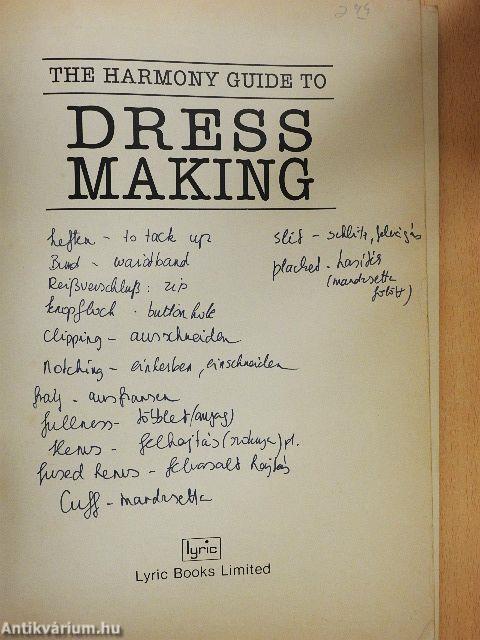 274
THE HARMONY GUIDE TO
DRESS
MAKING
heften - to tack up
Bund - waistband
Reißverschluß: zip
knopfloch - button hole
Clipping - ausschneiden
Notching - einkerben, einschneiden
fray - ausfransen
fullness - többlet (anyag)
Hems - felhajtás (szoknya) pl.
fused hems - felvasalt hajtás
Cuff - mandzsetta
slit - schlitz, felvágás
placked - hasíték
(mandzsetta
fölött)
lyric
Lyric Books Limited
Antikvárium.hu